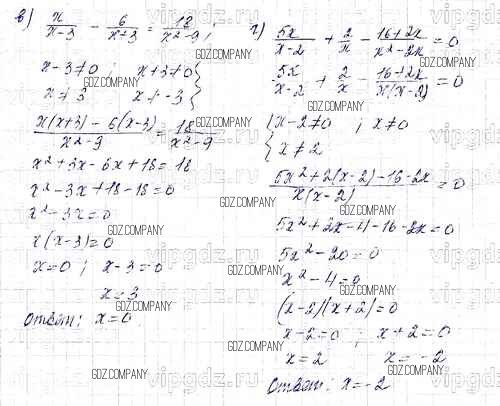 в) x/(x-3) - 6/(x+3) = 18/(x²-9);
x-3≠0 ; x+3≠0
x≠3 x≠-3
(x(x+3) - 6(x-3))/(x²-9) = 18/(x²-9)
x²+3x-6x+18=18
x²-3x+18-18=0
x²-3x=0
x(x-3)=0
x=0 ; x-3=0
x=3
Ответ: x=0.
г) 5x/(x-2) + 2/x - (16+2x)/(x²-2x) = 0
5x/(x-2) + 2/x - (16+2x)/(x(x-2)) = 0
{x-2≠0 ; x≠0
x≠2
(5x²+2(x-2)-16-2x)/(x(x-2)) = 0
5x²+2x-4-16-2x=0
5x²-20=0
x²-4=0
(x-2)(x+2)=0
x-2=0 ; x+2=0
x=2 x=-2
Ответ: x=-2
GDZ.COMPANY
vipgdz.ru